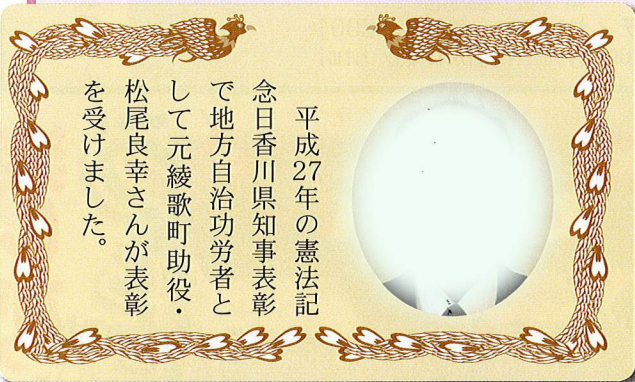 平成27年の憲法記
念日香川県知事表彰
で地方自治功労者と
して元綾歌町助役・
松尾良幸さんが表彰
を受けました。